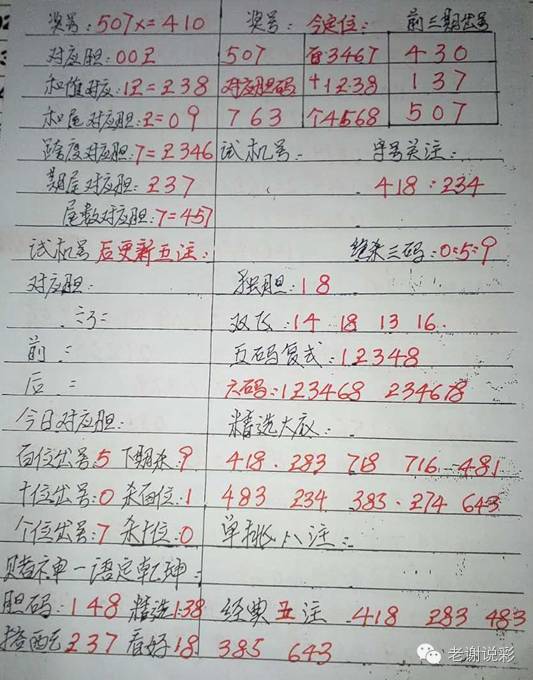 奖号:507x=410 奖号: 今定位: 前三期出号
对应胆:002 507 百3467 430
和值对应:12=238 对应胆码 十1238 137
和尾对应胆:2=09 763 个4568 507
跨度对应胆:7=2346 试机号: 字号关注:
期尾对应胆:237 418:234
尾数对应胆:7=457
试机号后更新五注: 绝杀三码:0=5=9
对应胆: 独胆:18
双飞:14 18 13 16
前 五码复式:12348
后 六码:123468 234678
今日对应胆: 精选大底:
百位出号:5 下期杀:9 418 283 718 716 481
十位出号:0 杀百位:1 483 234 383 274 643
个位出号:7 杀十位:0 单挑八注:
赌神一语定乾坤:
胆码:148 精选138 经典五注 418 283 483
搭配237 看好18 385 643
老谢说彩